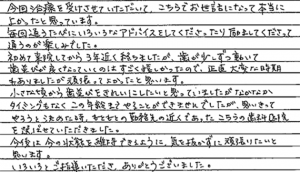 今回治療を受けさせていただいて、こちらでお世話になって本当に
よかったと思っています。
毎回通うたびにいろいろなアドバイスをしてくださったり励ましてくださって
通うのが楽しみでした。
初めて来院してから3年近く経ちましたが、歯が少しずつ動いて
歯並びが良くなっていくのはすごく嬉しかったので、正直大変な時期
もありましたが頑張ってよかったと思います。
小さな頃から歯並びをきれいにしたいと思っていましたがなかなか
タイミングもなくこの年齢までやることができませんでしたが、思いきって
やろうと決めた時、たまたま勤務先の近くであったこちらの歯科医院
を選ばせていただきました。
今後は今の状態を維持できるように、気を抜かずに頑張りたいと
思います。
いろいろとご指導いただき、ありがとうございました。